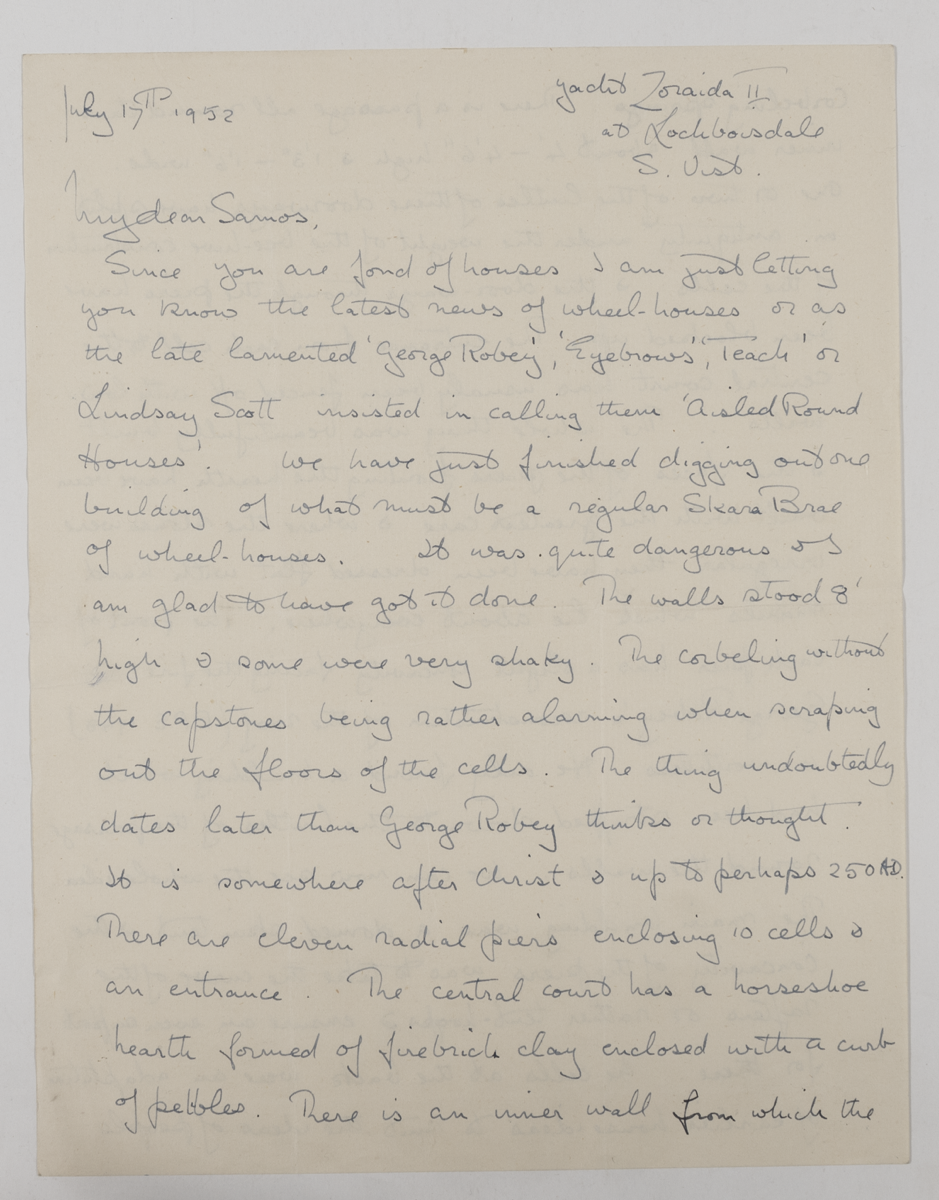 July 17TH 1952
yacht Zoraida II
at Lochboisdale
S. Uist.
My dear Samos,
Since you are fond of houses I am just letting
you know the latest news of wheel-houses or as
the late lamented 'George Robey', 'Eyebrows', 'Teach' or
Lindsay Scott insisted in calling them 'Aisled Round
Houses'. We have just finished digging out one
building of what must be a regular Skara Brae
of wheel-houses. It was quite dangerous & I
am glad to have got it done. The walls stood 8'
high & some were very shaky. The corbeling without
the capstones being rather alarming when scraping
out the floors of the cells. The thing undoubtedly
dates later than George Robey thinks or thought.
It is somewhere after Christ & up to perhaps 250 AD.
There are eleven radial piers enclosing 10 cells &
an entrance. The central court has a horseshoe
hearth formed of firebrick clay enclosed with a curb
of pebbles. There is an inner wall from which the